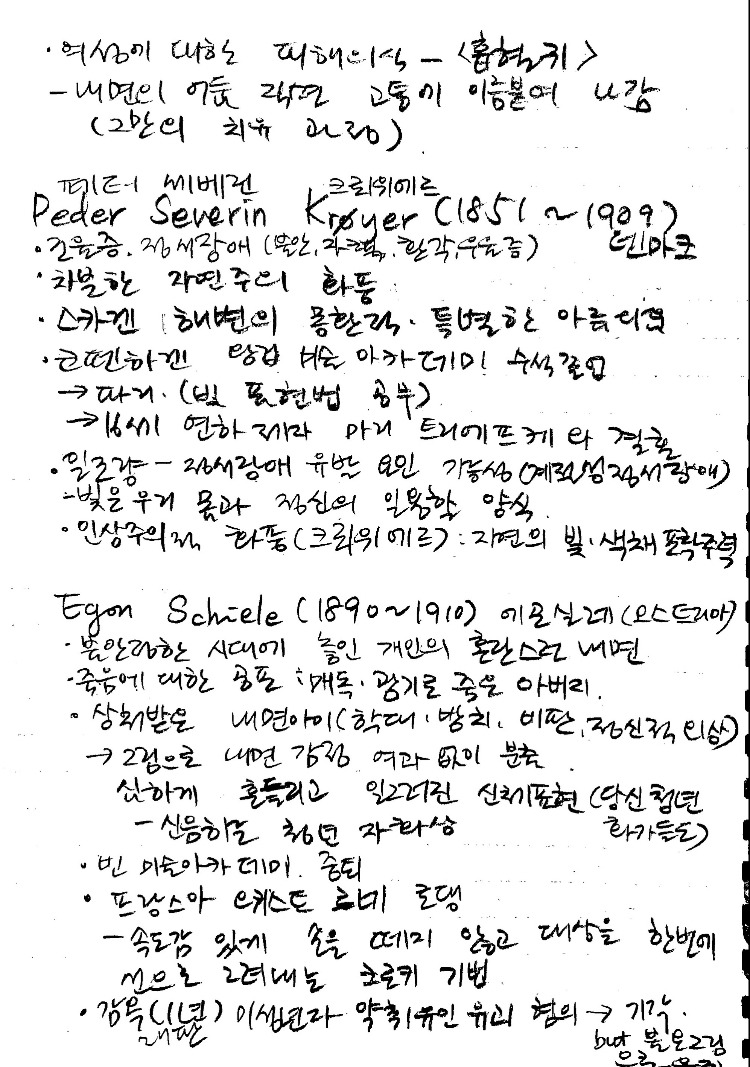 · 여성에 대한 피해의식 - <흡혈귀>
- 내면의 어둠 직면 고통에 이름붙여 나감
(그만의 치유 과정)
페더 세베린 크뢰위에르
Peder Severin Krøyer (1851 ~ 1909)
· 조울증. 정서장애 (불안, 자책, 환각, 우울증) 덴마크
· 차분한 자연주의 화풍
· 스카겐 해변의 몽환적 · 특별한 아름다움
· 코펜하겐 왕립 미술 아카데미 수석졸업
→ 파리. (빛 표현법 공부)
→ 16세 연하 제자 마리 트리에프케와 결혼
· 일조량 - 정서장애 유발 요인 가능성 (계절성정서장애)
- 빛은 우리 몸과 정신의 일용할 양식.
· 인상주의적 화풍 (크뢰위에르) : 자연의 빛 · 색채 포착주력
Egon Schiele (1890 ~ 1910) 에곤실레 (오스트리아)
· 불안정한 시대에 놓인 개인의 혼란스런 내면
· 죽음에 대한 공포 : 매독 · 광기로 죽은 아버지.
· 상처받은 내면아이 (학대 · 방치. 비판, 정신적 외상)
→ 그림으로 내면 감정 여과 없이 분출
심하게 흔들리고 일그러진 신체표현 (당신 청년
- 신음하는 청년 자화상 화가들도)
· 빈 미술아카데미. 중퇴
· 프랑스아 오귀스트 르네 로댕
- 속도감 있게 손을 떼지 않고 대상을 한번에
선으로 그려내는 크로키 기법
· 감옥 (1년) 미성년자 약취유인 유괴 혐의 → 기각.
재판 but 불온그림